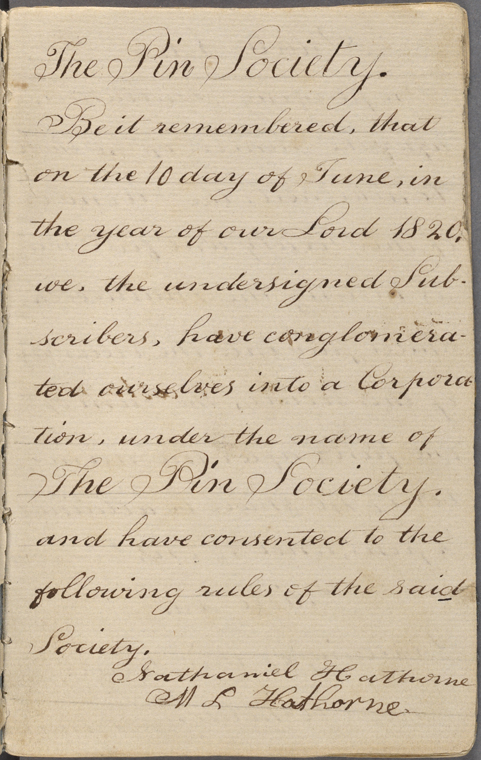 The Pin Society.
Be it remembered, that
on the 10 day of June, in
the year of our Lord 1820,
we, the undersigned Sub-
scribers, have conglomera-
ted ourselves into a Corpora-
tion, under the name of
The Pin Society.
and have consented to the
following rules of the said
Society.
Nathaniel Hathorne
M L Hathorne